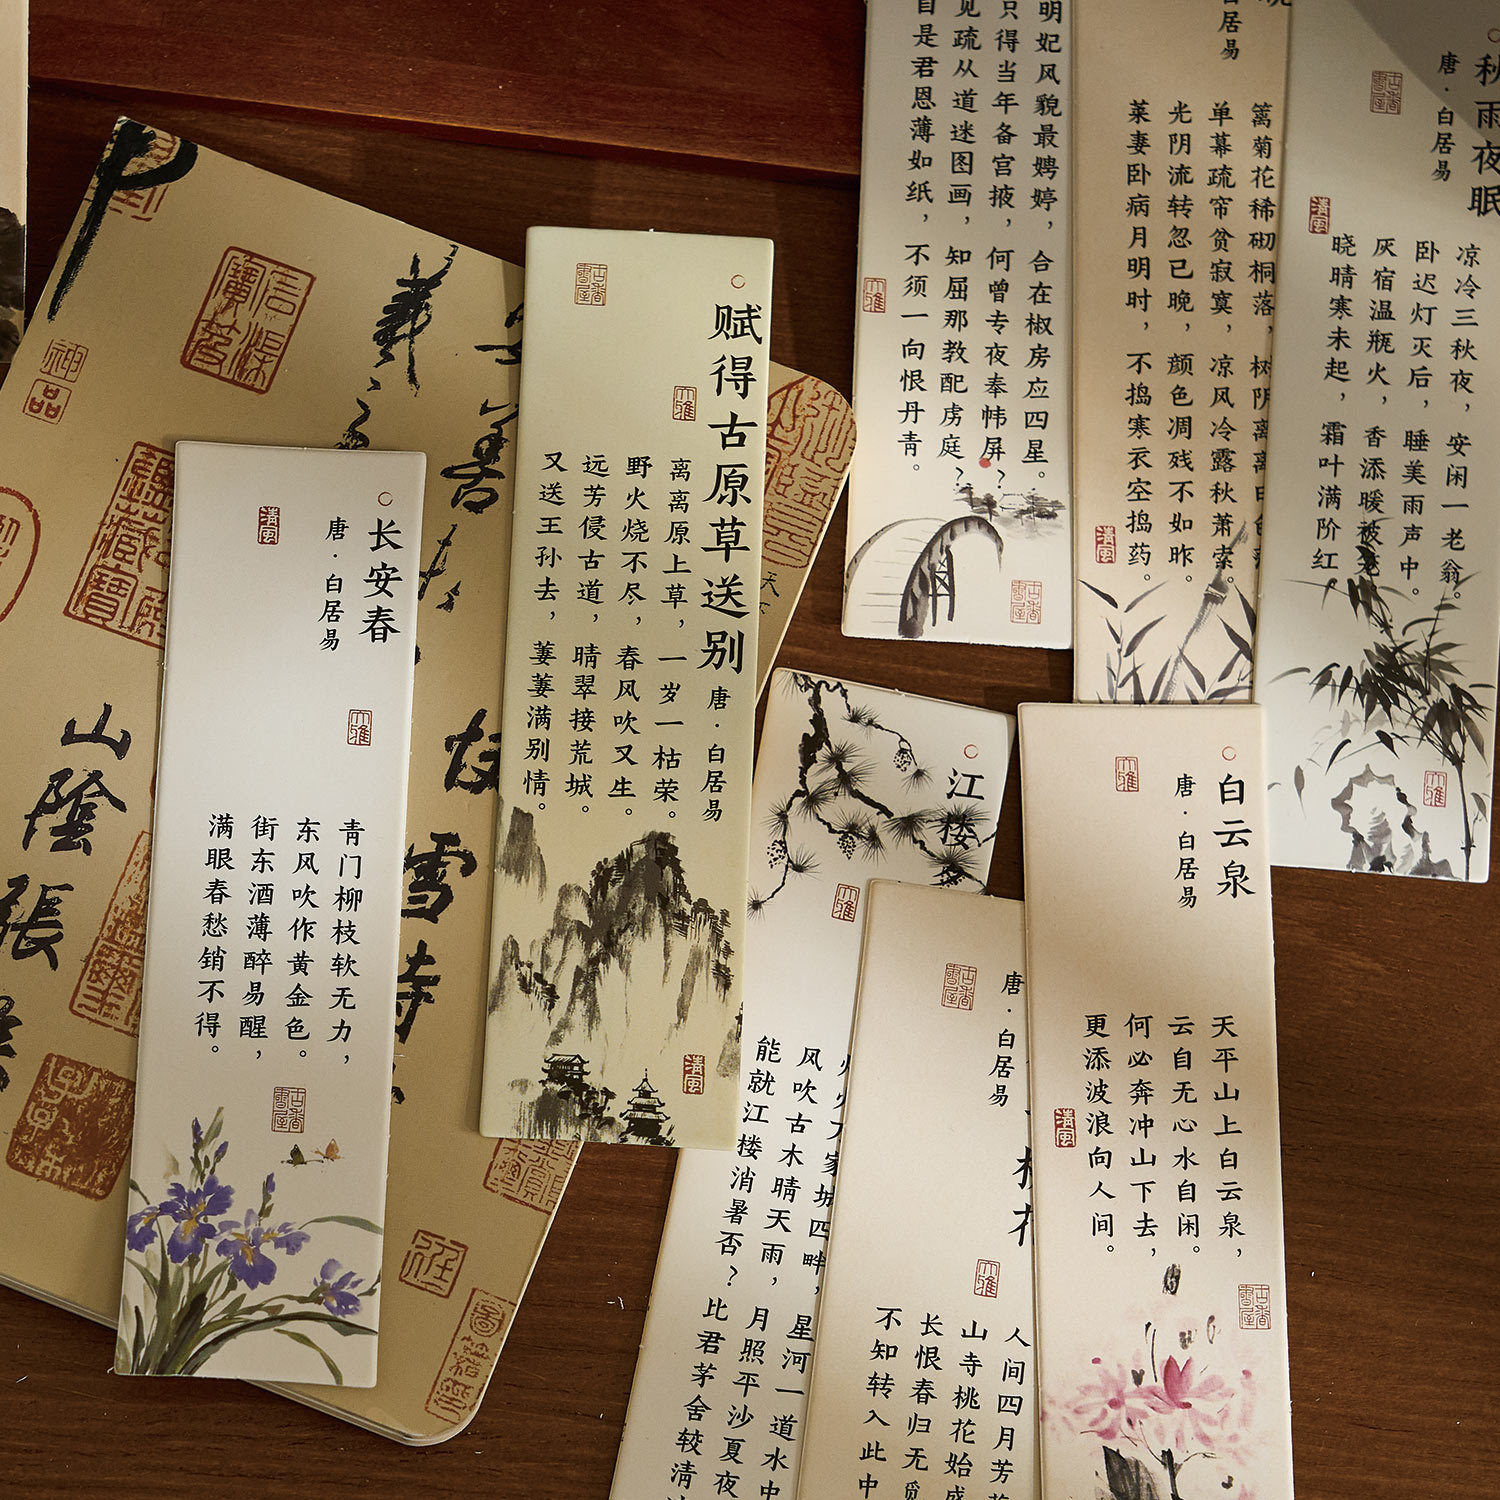 长安春
唐·白居易
青门柳枝软无力，
东风吹作黄金色。
街东酒薄醉易醒，
满眼春愁销不得。
赋得古原草送别
唐·白居易
离离原上草，一岁一枯荣。
野火烧不尽，春风吹又生。
远芳侵古道，晴翠接荒城。
又送王孙去，萋萋满别情。
明妃风貌最娉婷，合在椒房应四星。
只得当年备宫掖，何曾专夜奉帏屏？
见疏从道迷图画，知屈那教配虏庭？
自是君恩薄如纸，不须一向恨丹青。
居易
篱菊花稀砌桐落，树阴离离日色
单幕疏帘贫寂寞，凉风冷露秋萧索。
光阴流转忽已晚，颜色凋残不如昨。
莱妻卧病月明时，不捣寒衣空捣药。
秋雨夜眠
唐·白居易
凉冷三秋夜，安闲一老翁。
卧迟灯灭后，睡美雨声中。
灰宿温瓶火，香添暖被笼
晓晴寒未起，霜叶满阶红
江楼
家城四畔，星河一道水中
风吹古木晴天雨，月照平沙夏夜
能就江楼消暑否？比君茅舍较清
唐·白居易
桃花
人间四月芳
山寺桃花始盛
长恨春归无觅
不知转入此中
白云泉
唐·白居易
天平山上白云泉，
云自无心水自闲。
何必奔冲山下去，
更添波浪向人间。
山陰張
雪
清风
大雅
古香书屋
神品